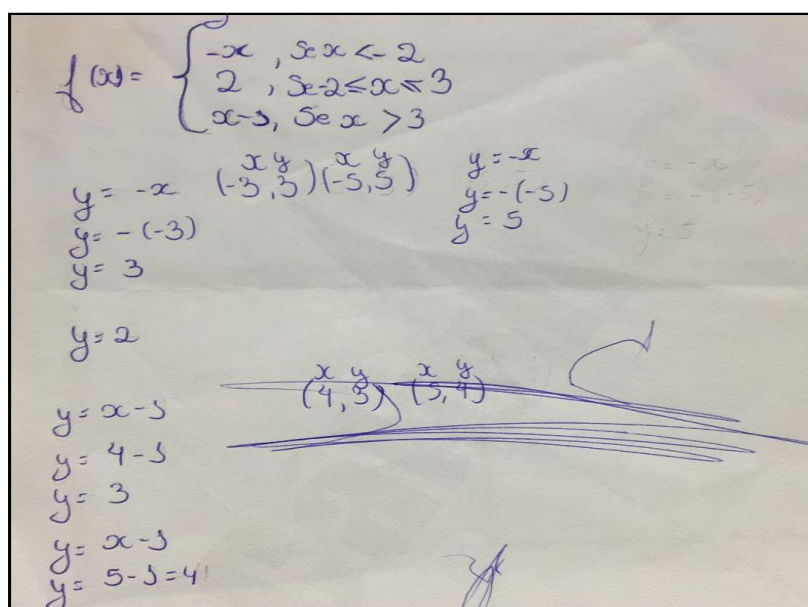 f(x) = { -x, Se x < -2
2, Se -2 ≤ x ≤ 3
x-1, Se x > 3
y = -x
y = -(-3)
y = 3
x y x y
(-3, 3) (-5, 5)
y = -x
y = -(-5)
y = 5
y = -x
y = -(-5)
y = 5
y = 2
x y x y
(4, 3) (5, 4)
y = x-1
y = 4-1
y = 3
y = x-1
y = 5-1=4